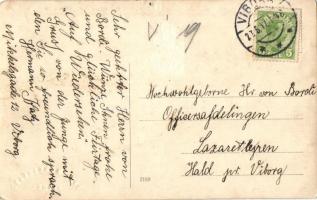 Sehr geehrter Herrn von
Bordi. Wünsche Ihnen frohe
und glückliche Feiertage.
Auf Wiedersehen.
Gruss von der Junge mit
den Sie so freundlich sprach.
Hermann
Mikkelsgade 13 Viborg
VIBORG
5
Hochwohlgeborne Hr von Bordi
Officersafdelingen
Lazaretlejren
Hald pr Viborg